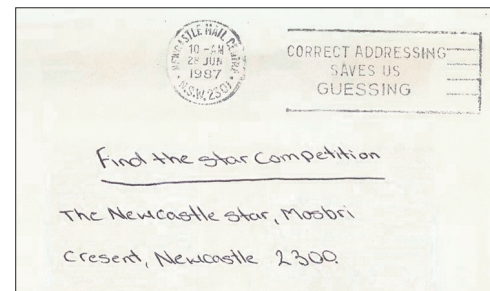 NEWCASTLE MAIL CENTRE
10-AM
28 JUN
1987
N.S.W. 2301
CORRECT ADDRESSING
SAVES US
GUESSING
Find the star Competition
The Newcastle star, Mosbri
Cresent, Newcastle 2300.